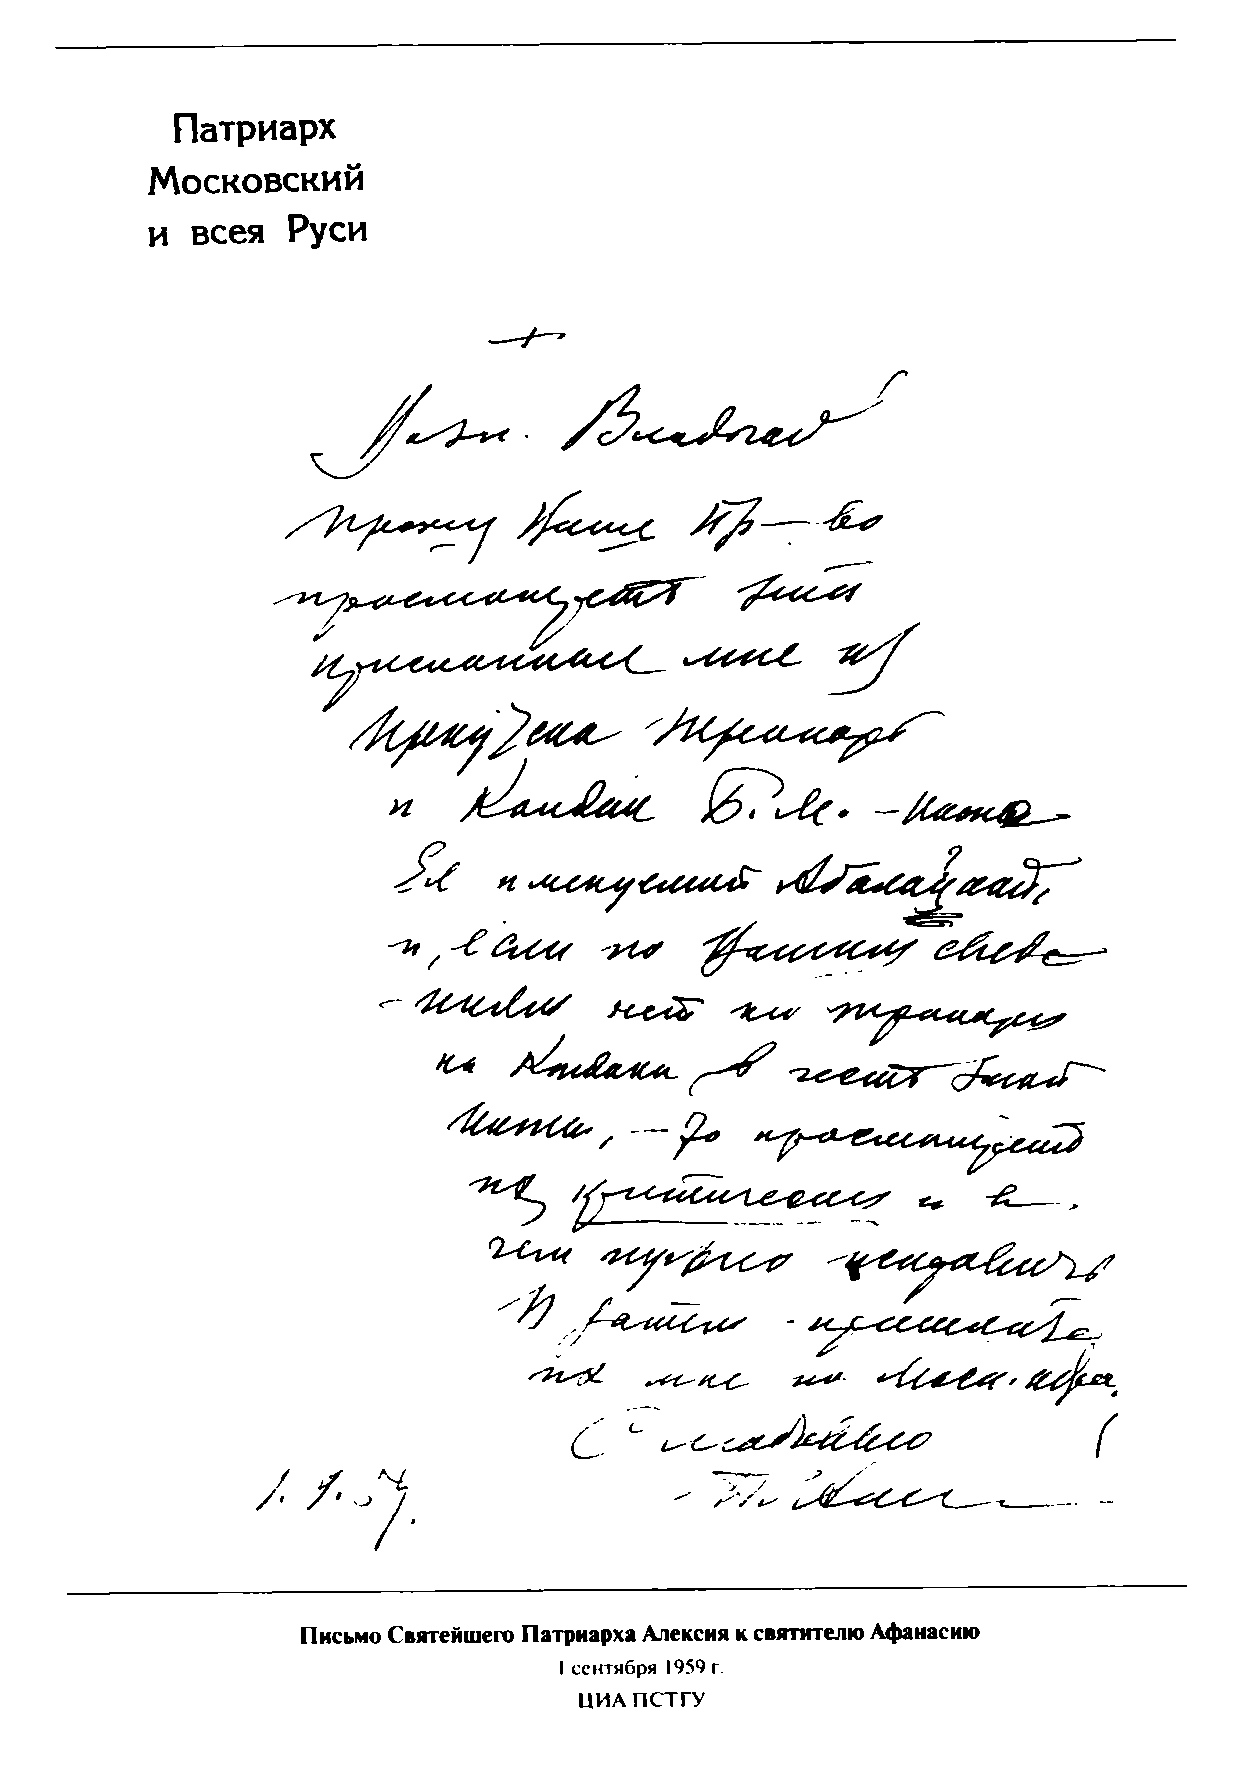 Патриарх
Московский
и всея Руси
+
Владыко
Прошу Ваше Пр–во
просмотреть эти
присланные мне из
Иркутска Тропарь
и Кондак Б.М. –
Ея именуемой Абалацкой,
и, если по Вашим сведе
-ниям нет ни тропаря
ни Кондака в честь этой
Иконы, – то просмотреть
их критически и в
чем нужно исправить
И затем - пришлите
их мне по Моск. адр.
С любовию
П. Алек
1. 9. 59.
Письмо Святейшего Патриарха Алексия к святителю Афанасию
1 сентября 1959 г.
ЦИА ПСТГУ